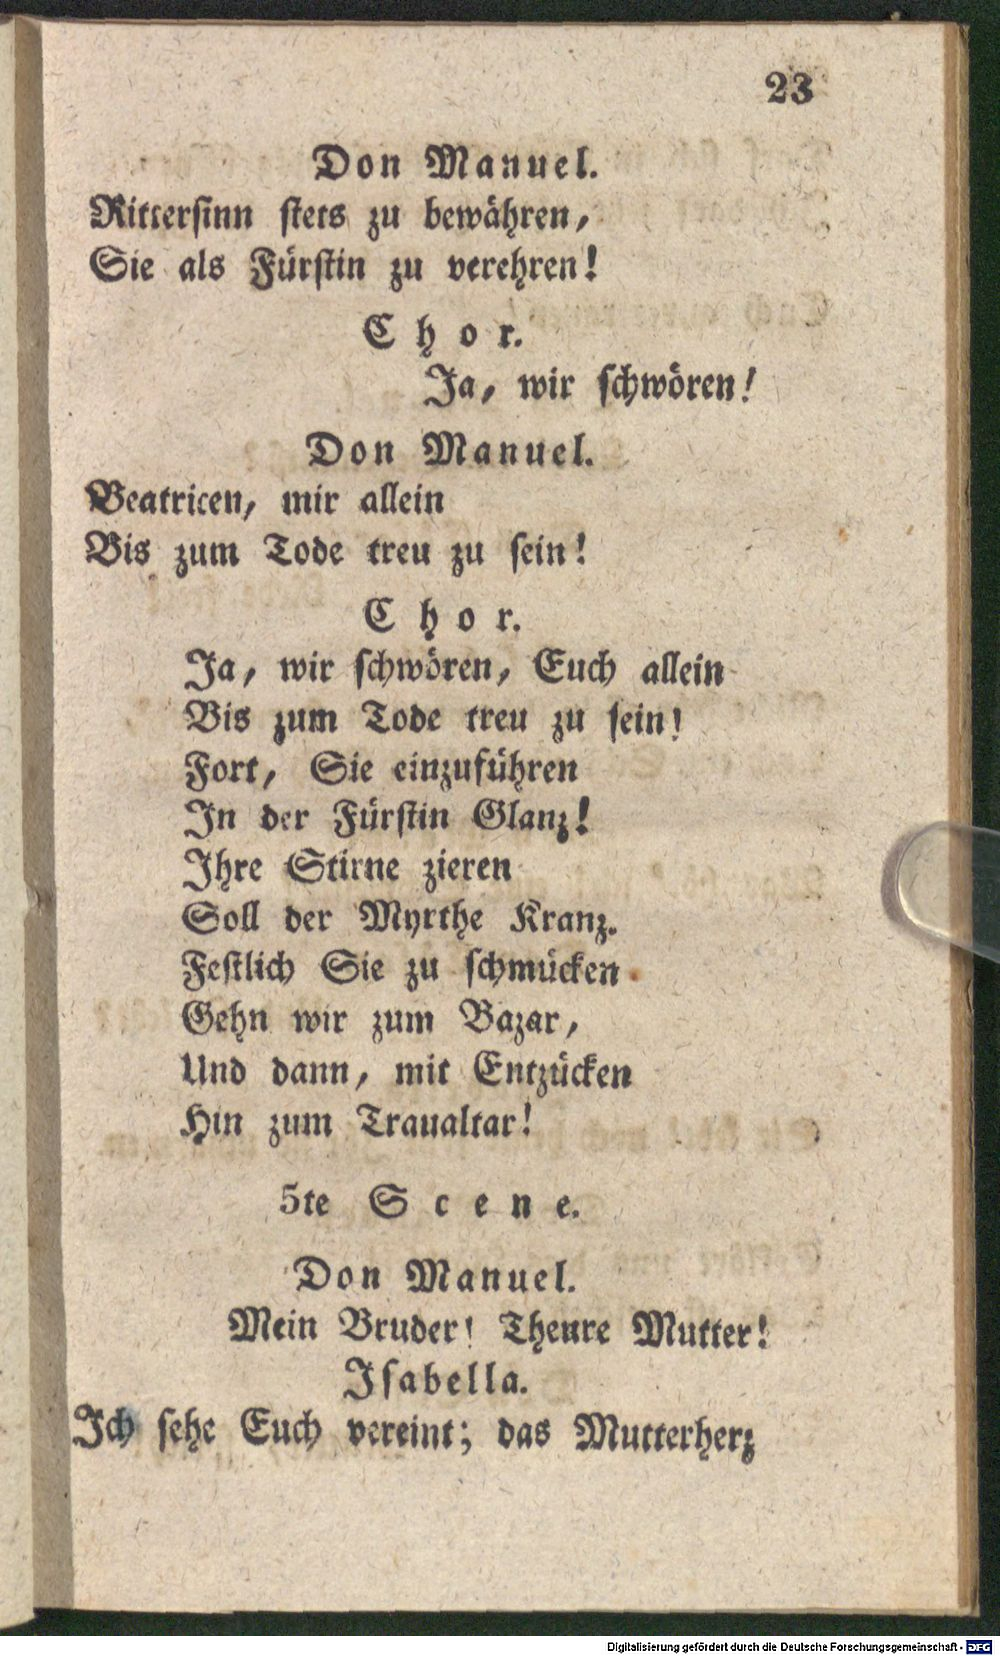 23
Don Manuel.
Rittersinn stets zu bewähren,
Sie als Fürstin zu verehren!
Chor.
Ja, wir schwören!
Don Manuel.
Beatricen, mir allein
Bis zum Tode treu zu sein!
Chor.
Ja, wir schwören, Euch allein
Bis zum Tode treu zu sein!
Fort, Sie einzuführen
In der Fürstin Glanz!
Ihre Stirne zieren
Soll der Myrthe Kranz.
Festlich Sie zu schmücken
Gehn wir zum Bazar,
Und dann, mit Entzücken
Hin zum Traualtar!
5te Scene.
Don Manuel.
Mein Bruder! Theure Mutter!
Isabella.
Ich sehe Euch vereint; das Mutterherz
Digitalisierung gefördert durch die Deutsche Forschungsgemeinschaft - DFG